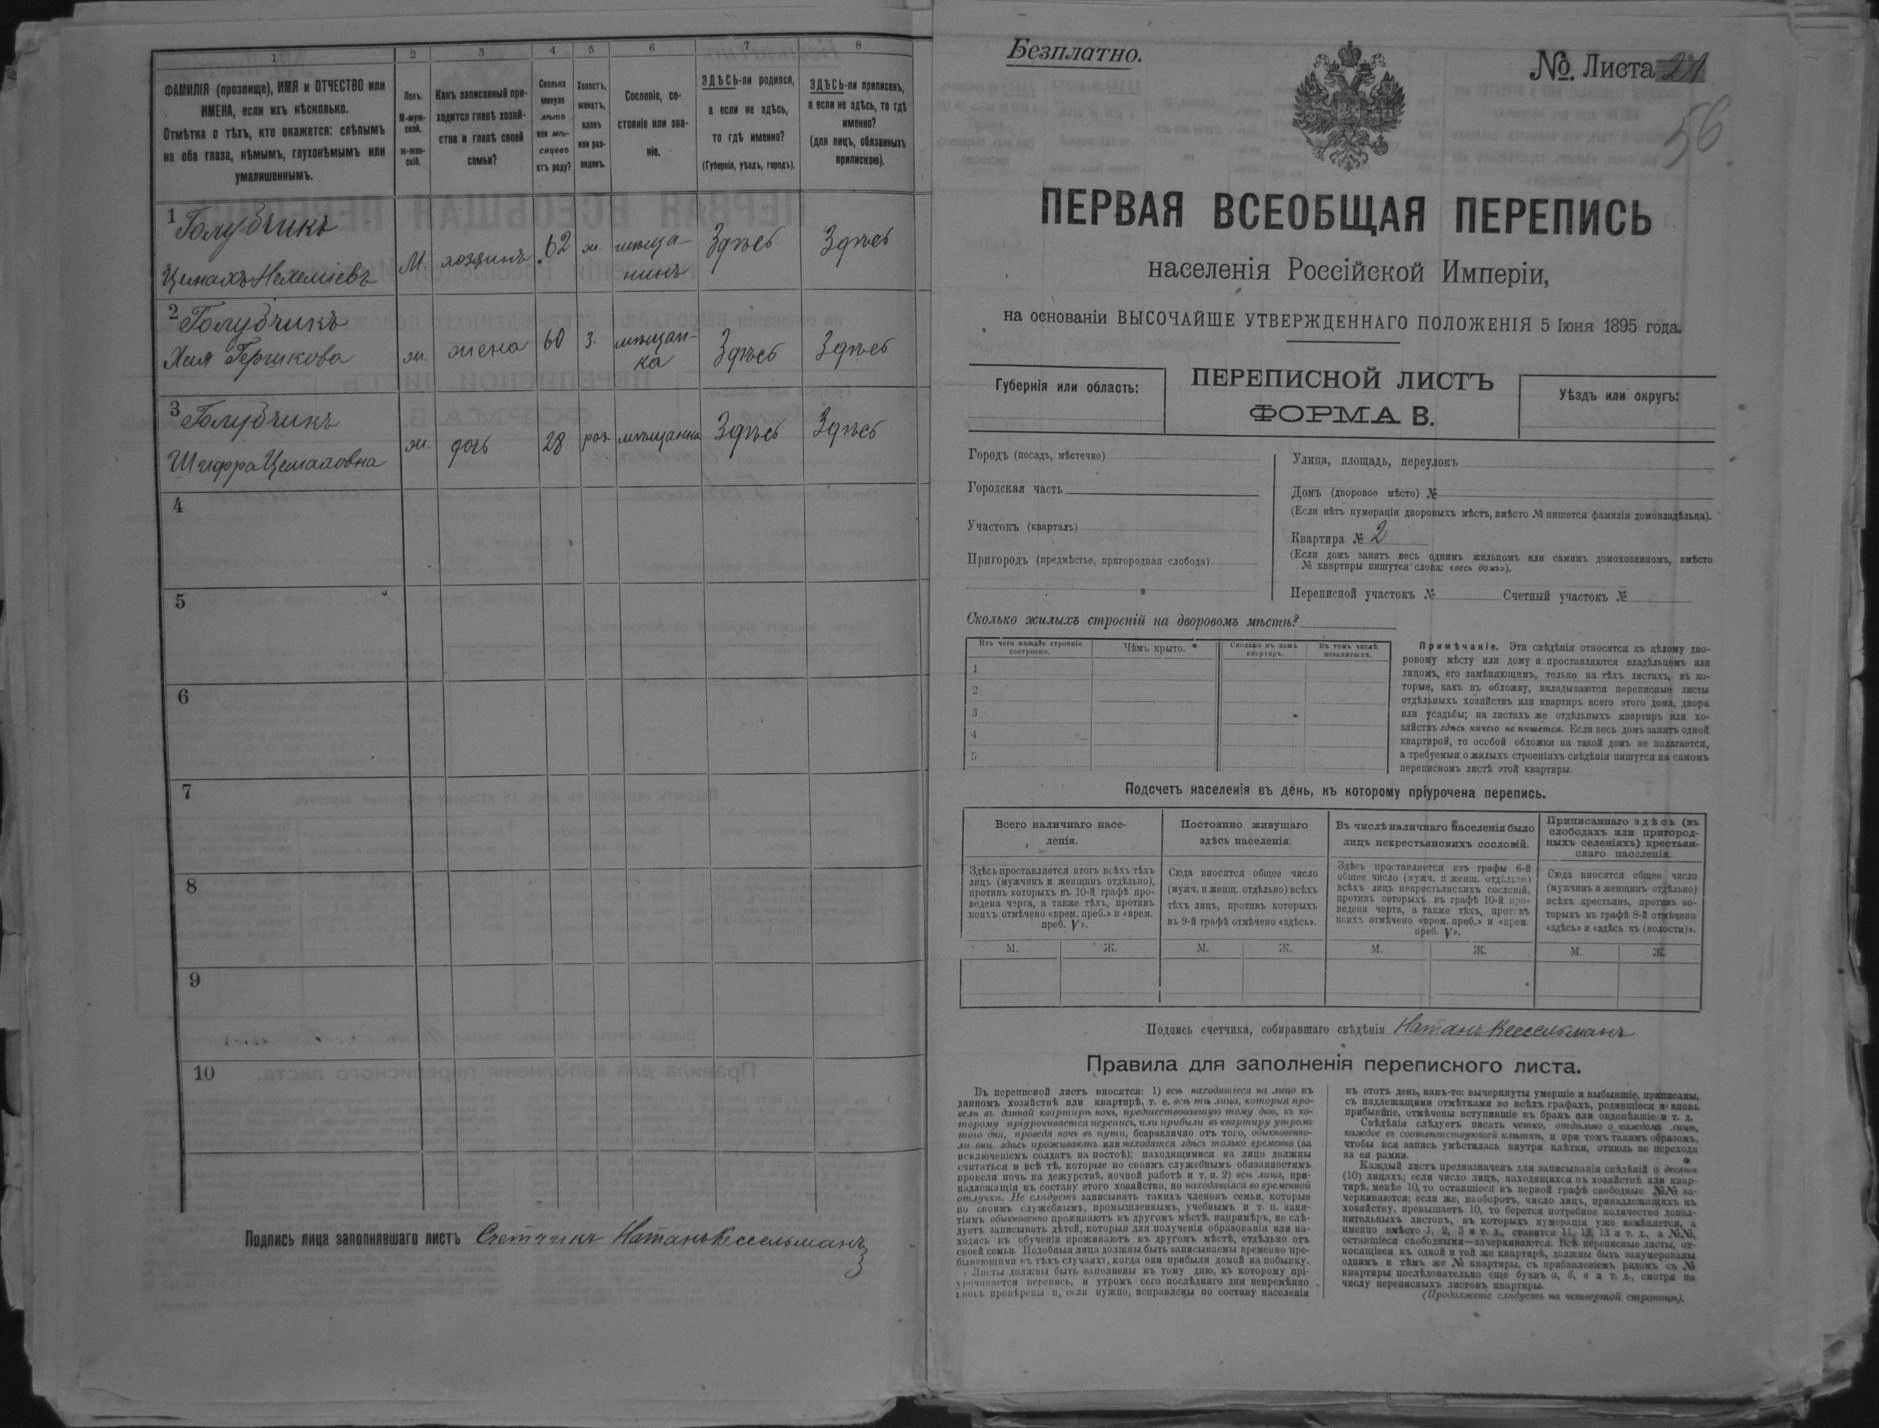 1 2 3 4 5 6 7 8
ФАМИЛІЯ (прозвище), ИМЯ и ОТЧЕСТВО или
ИМЕНА, если ихъ нѣсколько.
Отмѣтка о тѣхъ, кто окажется: слѣпымъ
на оба глаза, нѣмымъ, глухонѣмымъ или
умалишеннымъ.
Полъ.
М-муж-
ской.
ж-жен-
скій.
Какъ записанный при-
ходится главѣ хозяй-
ства и главѣ своей
семьи?
Сколько
минуло
лѣтъ
или мѣ-
сяцевъ
отъ роду?
Холостъ,
женатъ,
вдовъ
или раз-
веденъ.
Сословіе, со-
стояніе или зва-
ніе.
ЗДѢСЬ-ли родился,
а если не здѣсь,
то гдѣ именно?
(Губернія, уѣздъ, городъ).
ЗДѢСЬ-ли приписанъ,
а если не здѣсь, то гдѣ
именно?
(для лицъ, обязанныхъ
припискою).
1 Голубчикъ
Цемахъ Нехеміевъ М. хозяинъ 62 ж. мѣща-
нинъ Здѣсь Здѣсь
2 Голубчикъ
Хая Гершкова ж. жена 60 з. мѣщан-
ка Здѣсь Здѣсь
3 Голубчикъ
Шифра Цемаховна ж. дочь 28 раз. мѣщанка Здѣсь Здѣсь
4
5
6
7
8
9
10
Подпись лица заполнявшаго листъ Счетчикъ Натанъ Кессельманъ
Безплатно.
№ Листа 21
56
ПЕРВАЯ ВСЕОБЩАЯ ПЕРЕПИСЬ
населенія Россійской Имперіи,
на основаніи ВЫСОЧАЙШЕ УТВЕРЖДЕННАГО ПОЛОЖЕНІЯ 5 Іюня 1895 года.
Губернія или область:
ПЕРЕПИСНОЙ ЛИСТЪ
ФОРМА В.
Уѣздъ или округъ:
Городъ (посадъ, мѣстечко)
Городская часть
Участокъ (кварталъ)
Пригородъ (предмѣстье, пригородная слобода)
Улица, площадь, переулокъ
Домъ (дворовое мѣсто) №
(Если нѣтъ нумераціи дворовыхъ мѣстъ, вмѣсто № пишется фамилія домовладѣльца).
Квартира № 2
(Если домъ занятъ весь однимъ жильцомъ или самимъ домохозяиномъ, вмѣсто
№ квартиры пишутся слова: «весь домъ»).
Переписной участокъ № Счетный участокъ №
Сколько жилыхъ строеній на дворовомъ мѣстѣ?
Изъ чего каждое строеніе
построено.
Чѣмъ крыто.
Сколько въ немъ
квартиръ.
Въ томъ числѣ
незанятыхъ.
1
2
3
4
5
Примѣчаніе. Эти свѣдѣнія относятся къ цѣлому дво-
ровому мѣсту или дому и проставляются владѣльцемъ или
лицомъ, его замѣняющимъ, только на тѣхъ листахъ, въ ко-
торые, какъ въ обложку, вкладываются переписные листы
отдѣльныхъ хозяйствъ или квартиръ всего этого дома, двора
или усадьбы; на листахъ же отдѣльныхъ квартиръ или хо-
зяйствъ здѣсь ничего не пишется. Если весь домъ занятъ одной
квартирой, то особой обложки на такой домъ не полагается,
а требуемыя о жилыхъ строеніяхъ свѣдѣнія пишутся на самомъ
переписномъ листѣ этой квартиры.
Подсчетъ населенія въ день, къ которому пріурочена перепись.
Всего наличнаго насе-
ленія.
Здѣсь проставляется итогъ всѣхъ тѣхъ
лицъ (мужчинъ и женщинъ отдѣльно),
противъ которыхъ въ 10-й графѣ про-
ведена черта, а также тѣхъ, противъ
коихъ отмѣчено «врем. преб.» и «врем.
преб. V».
Постоянно живущаго
здѣсь населенія.
Сюда вносится общее число
(мужч. и женщ. отдѣльно) всѣхъ
тѣхъ лицъ, противъ которыхъ
въ 9-й графѣ отмѣчено «здѣсь».
Въ числѣ наличнаго населенія было
лицъ некрестьянскихъ сословій.
Здѣсь проставляется изъ графы 6-й
общее число (мужч. и женщ. отдѣльно)
всѣхъ лицъ некрестьянскихъ сословій,
противъ которыхъ въ графѣ 10-й про-
ведена черта, а также тѣхъ, противъ
коихъ отмѣчено «врем. преб.» и «врем.
преб. V».
Приписаннаго здѣсь (въ
слободахъ или пригород-
ныхъ селеніяхъ) крестьян-
скаго населенія.
Сюда вносится общее число
(мужчинъ и женщинъ отдѣльно)
всѣхъ крестьянъ, противъ ко-
торыхъ въ графѣ 8-й отмѣчено
«здѣсь» и «здѣсь къ (волости)».
М. Ж. М. Ж. М. Ж. М. Ж.
Подпись счетчика, собиравшаго свѣдѣнія Натанъ Кессельманъ
Правила для заполненія переписного листа.
Въ переписной листъ вносятся: 1) всѣ находящіеся на лицо въ
данномъ хозяйствѣ или квартирѣ, т. е. всѣ тѣ лица, которыя про-
вели въ данной квартирѣ ночь, предшествовавшую тому дню, къ ко-
торому пріурочивается перепись, или прибыли въ квартиру утромъ
того дня, проведя ночь въ пути, безразлично отъ того, обыкновенно-
ли они здѣсь проживаютъ или находятся здѣсь только временно (за
исключеніемъ солдатъ на постоѣ); находящимися на лицо должны
считаться и всѣ тѣ, которые по своимъ служебнымъ обязанностямъ
провели ночь на дежурствѣ, ночной работѣ и т. п. 2) всѣ лица, при-
надлежащія къ составу этого хозяйства, но находящіяся во временной
отлучкѣ. Не слѣдуетъ записывать такихъ членовъ семьи, которые
по своимъ служебнымъ, промышленнымъ, учебнымъ и т. п. заня-
тіямъ обыкновенно проживаютъ въ другомъ мѣстѣ, напримѣръ, не слѣ-
дуетъ записывать дѣтей, которыя для полученія образованія или на-
ходясь въ обученіи проживаютъ въ другомъ мѣстѣ, отдѣльно отъ
своей семьи. Подобныя лица должны быть записываемы временно пре-
бывающими въ тѣхъ случаяхъ, когда они прибыли домой на побывку.
Листы должны быть заполнены къ тому дню, къ которому прі-
урочивается перепись, и утромъ сего послѣдняго дня непремѣнно
вновь провѣрены и, если нужно, исправлены по составу населенія
въ этотъ день, какъ-то: вычеркнуты умершіе и выбывшіе, приписаны,
съ надлежащими отмѣтками во всѣхъ графахъ, родившіеся и вновь
прибывшіе, отмѣчены вступившіе въ бракъ или овдовѣвшіе и т. д.
Свѣдѣнія слѣдуетъ писать четко, отдѣльно о каждомъ лицѣ,
каждое въ соотвѣтствующей клѣткѣ, и при томъ такимъ образомъ,
чтобы вся запись умѣстилась внутри клѣтки, отнюдь не переходя
за ея рамки.
Каждый листъ предназначенъ для записыванія свѣдѣній о десяти
(10) лицахъ; если число лицъ, находящихся въ хозяйствѣ или квар-
тирѣ, менѣе 10, то оставшіеся въ первой графѣ свободные №№ за-
черкиваются; если же, наоборотъ, число лицъ, принадлежащихъ къ
хозяйству, превышаетъ 10, то берется потребное количество допол-
нительныхъ листовъ, въ которыхъ нумерація уже измѣняется, а
именно вмѣсто 1, 2, 3 и т. д., ставится 11, 12, 13 и т. д., а №№,
оставшіеся свободными—зачеркиваются. Всѣ переписные листы, от-
носящіеся къ одной и той же квартирѣ, должны быть занумерованы
однимъ и тѣмъ же № квартиры, съ прибавленіемъ рядомъ съ №
квартиры послѣдовательно еще буквъ а, б, в и т. д., смотря по
числу переписныхъ листовъ квартиры.
(Продолженіе слѣдуетъ на четвертой страницѣ).